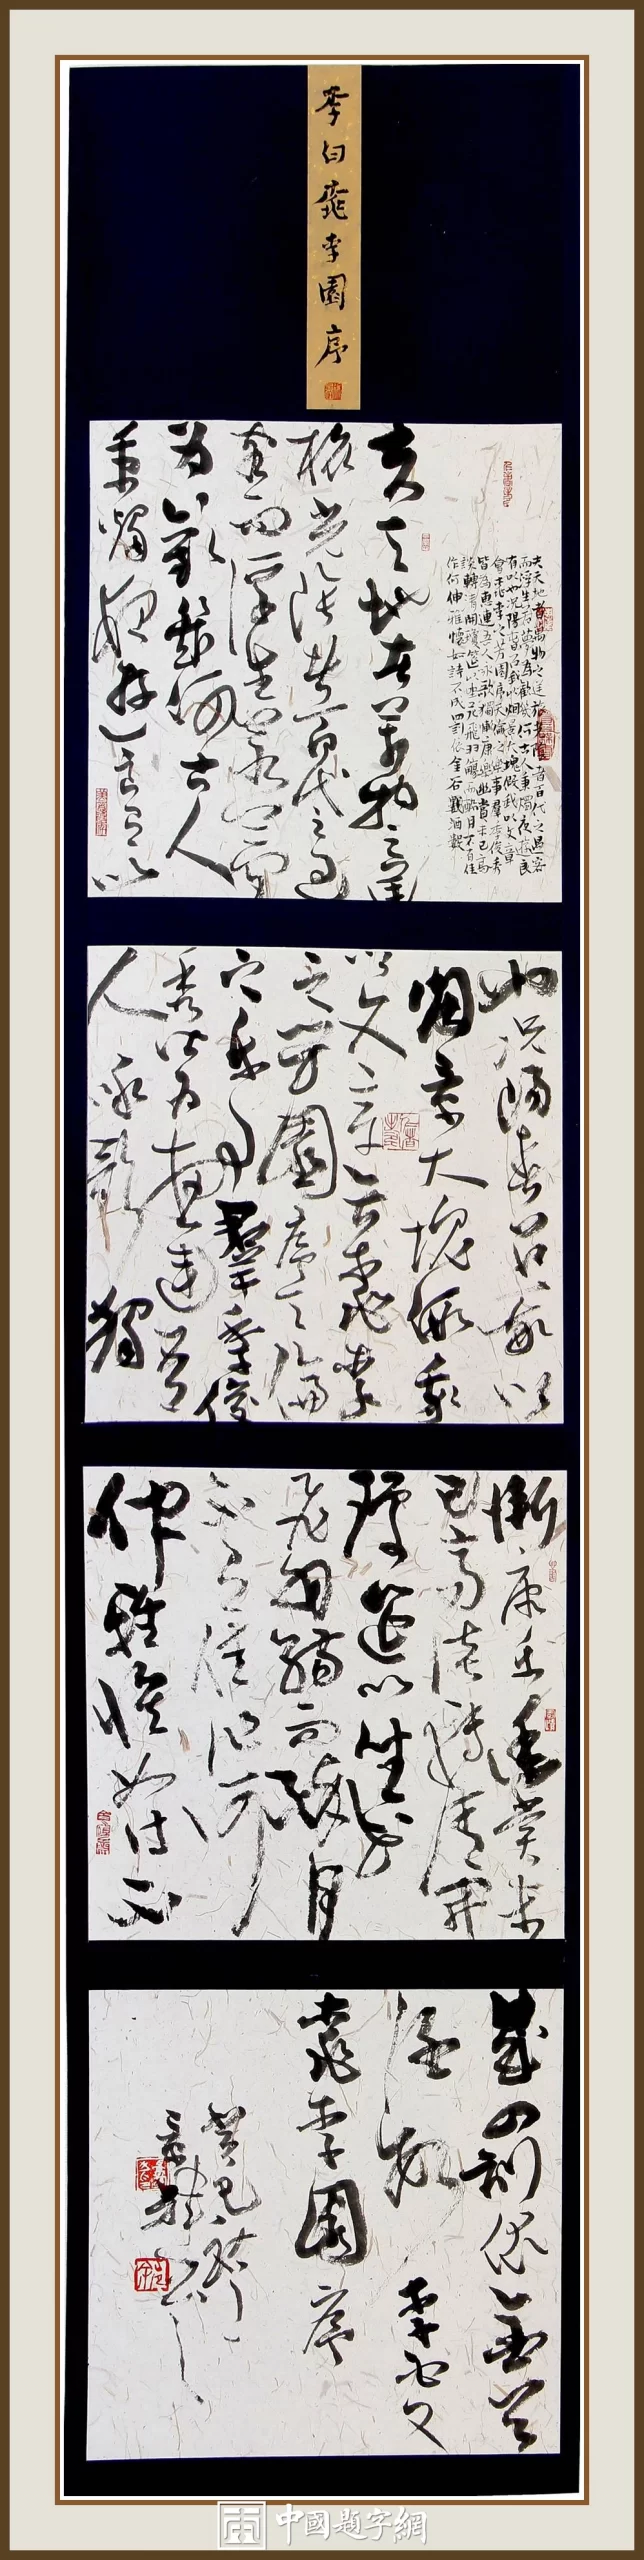 李白桃李園序
夫天地者萬物之逆旅光陰者百代之過客
而浮生若夢為歡幾何古人秉燭夜遊良
有以也況陽春召我以烟景大塊假我以文章
會桃李之芳園序天倫之樂事群季俊秀
皆為惠連吾人詠歌獨慚康樂幽賞未已高
談轉清開瓊筵以坐花飛羽觴而醉月不有佳
作何伸雅懷如詩不成罰依金谷酒數
夫天地者萬物之逆
旅光陰者百代之過
客而浮生若夢
為歡幾何古人
秉燭夜遊良有以
也況陽春召我以
烟景大塊假我
以文章會桃李
之芳園序天倫
之樂事群季俊
秀皆為惠連吾
人詠歌獨
慚康樂幽賞未
已高談轉清開
瓊筵以坐花
飛羽觴而醉月
不有佳作何
伸雅懷如詩不
成罰依金谷
酒數 李白文
桃李園序
癸巳
中國題字網